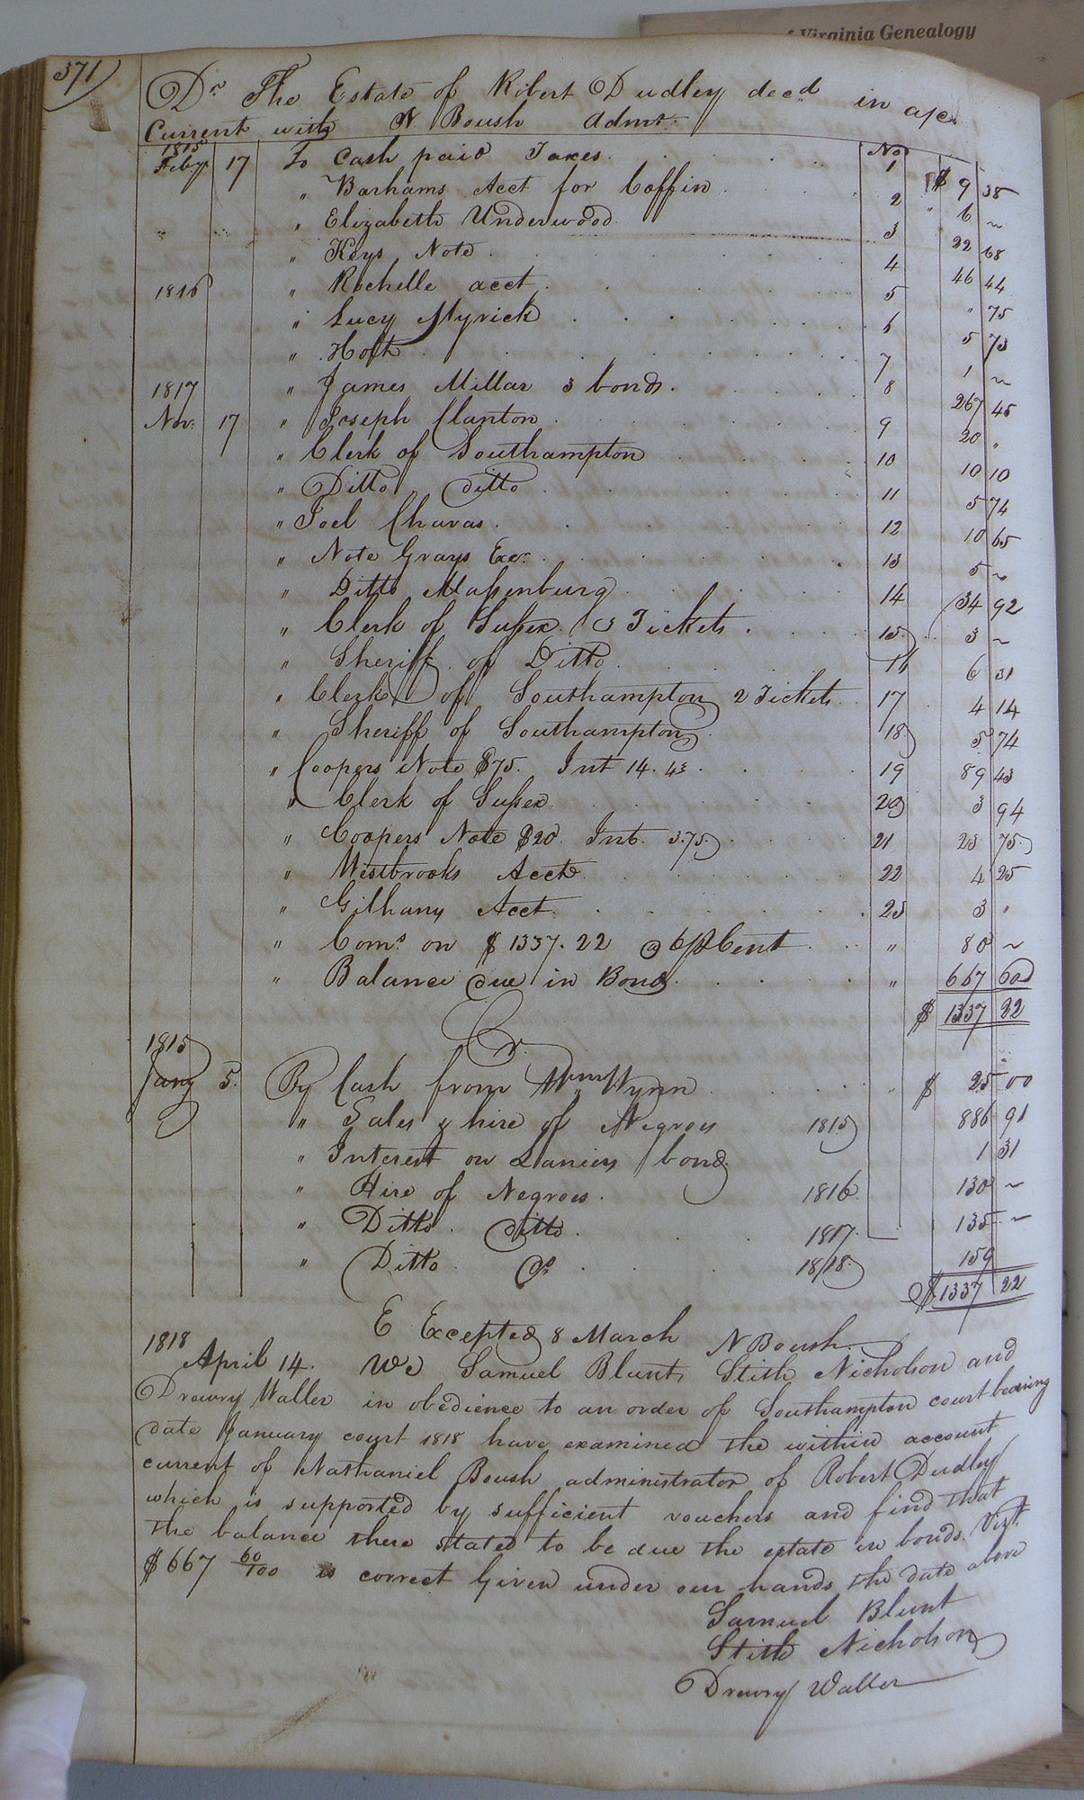 Virginia Genealogy
371
Dr The Estate of Robert Dudley decd in a/c
Current with N Boush Admr.
1815 No
Feby 17 To Cash paid Taxes 1 $ 9 38
" Barhams Acct for Coffin 2 6 ~
" Elizabeth Underwood 3 22 68
" Keys Note 4 46 44
1816 " Rochelle acct 5 " 75
" Lucy Myrick 6 5 73
" Holt 7 1 ~
1817 " James Millar 3 bonds. 8 267 45
Nov. 17 " Joseph Clanton 9 20 "
" Clerk of Southampton 10 10 10
" Ditto ditto 11 5 74
" Joel Chavas 12 10 65
" Note Grays Exr. 13 5 ~
" Ditto Massenburg 14 34 92
" Clerk of Sussex 3 Tickets 15 3 ~
" Sheriff of Ditto 16 6 31
" Clerk of Southampton 2 Tickets 17 4 14
" Sheriff of Southampton 18 5 74
" Coopers Note $75. Int 14.43 19 89 43
" Clerk of Sussex 20 3 94
" Coopers Note $20 Int. 3.75 21 23 75
" Westbrooks Acct 22 4 25
" Gilhany Acct 23 3 "
" Coms on $1337.22 @ 6 p Cent " 80 ~
" Balance due in Bonds " 667 60
$ 1337 22
Cr.
1815
Jany 5. By Cash from Wm Wynn $ 25 00
" Sales & hire of Negroes 1815 886 91
" Interest on Laniers bond 1 31
" Hire of Negroes. 1816 130 ~
" Ditto ditto 1817. 135 ~
" Ditto Do 1818 159
$ 1337 22
E Excepted 8 March N Boush
1818
April 14. We Samuel Blunt, Stith Nicholson and
Drewry Waller in obedience to an order of Southampton court bearing
date January court 1818 have examined the within account
current of Nathaniel Boush administrator of Robert Dudley
which is supported by sufficient vouchers and find that
the balance there stated to be due the estate in bonds Vizt.
$667 60/100 is correct Given under our hands the date above
Samuel Blunt
Stith Nicholson
Drewry Waller